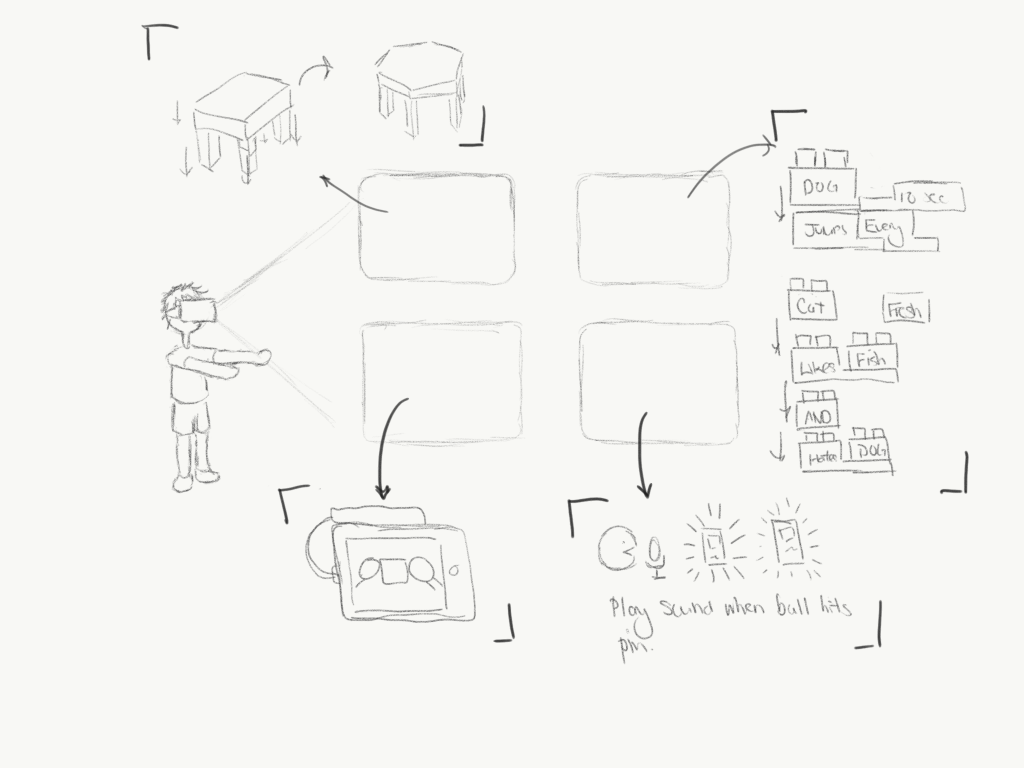 DOG
10 sec
Jumps Every
Cat Fresh
Likes Fish
AND
Hates DOG
Play sound when ball hits
pin.